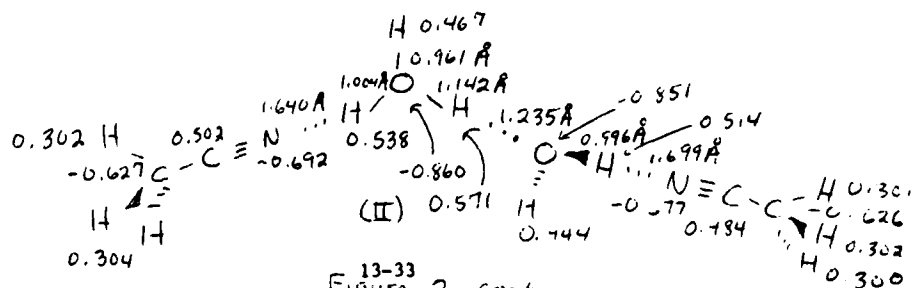 H 0.467
0.961 Å
1.004 Å O 1.142 Å
1.640 Å H H 1.235 Å -0.851
0.302 H 0.502 N 0.538 0.996 Å 0.514
-0.627 C - C ≡ -0.692 -0.860 O H 1.699 Å
H H (II) 0.571 H N ≡ C - C H
0.304 0.444 -0.677 0.484 -0.626
H 0.302
H 0.300
13-33